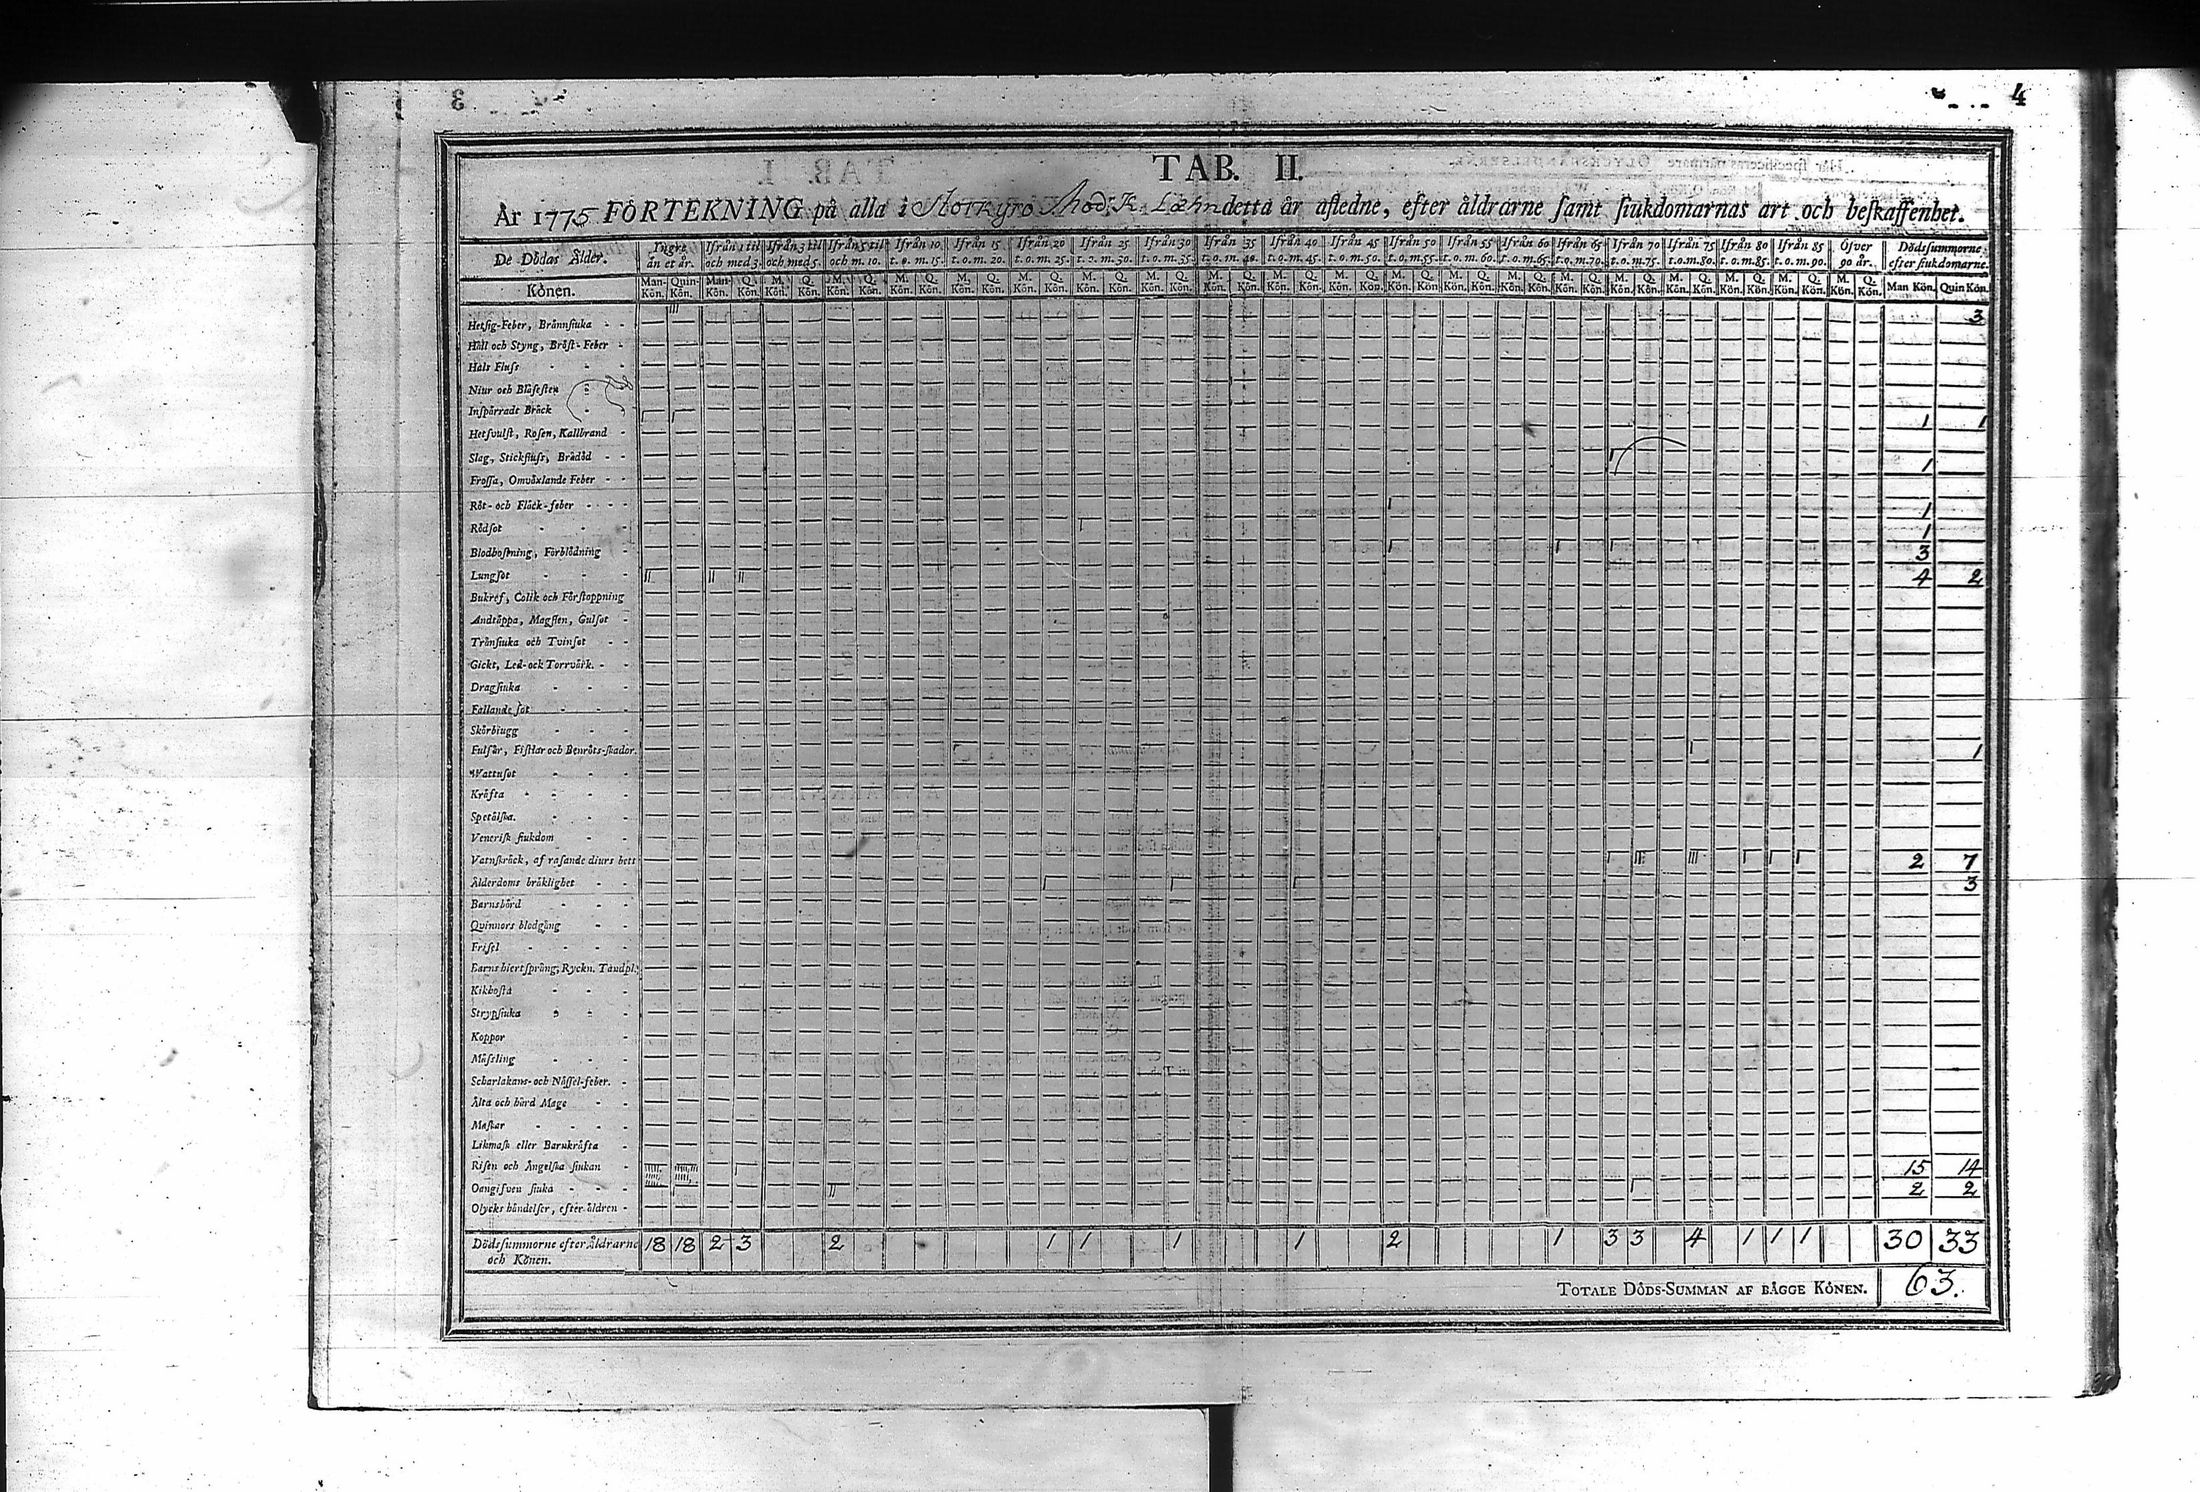 4
TAB. II.
År 1775 FÖRTEKNING på alla i Storkyro detta år afledne, efter åldrarne samt siukdomarnas art och beskaffenhet.
De Dödas Ålder. Yngre än et år. Ifrån 1 til och med 3. Ifrån 3 til och med 5. Ifrån 5 til och m. 10. Ifrån 10 t. o. m. 15. Ifrån 15 t. o. m. 20. Ifrån 20 t. o. m. 25. Ifrån 25 t. o. m. 30. Ifrån 30 t. o. m. 35. Ifrån 35 t. o. m. 40. Ifrån 40 t. o. m. 45. Ifrån 45 t. o. m. 50. Ifrån 50 t. o. m. 55. Ifrån 55 t. o. m. 60. Ifrån 60 t. o. m. 65. Ifrån 65 t. o. m. 70. Ifrån 70 t. o. m. 75. Ifrån 75 t. o. m. 80. Ifrån 80 t. o. m. 85. Ifrån 85 t. o. m. 90. Öfver 90 år. Dödssummorne efter siukdomarne.
Könen. Man-Kön. Quin-Kön. Man-Kön. Q. Kön. M. Kön. Q. Kön. M. Kön. Q. Kön. M. Kön. Q. Kön. M. Kön. Q. Kön. M. Kön. Q. Kön. M. Kön. Q. Kön. M. Kön. Q. Kön. M. Kön. Q. Kön. M. Kön. Q. Kön. M. Kön. Q. Kön. M. Kön. Q. Kön. M. Kön. Q. Kön. M. Kön. Q. Kön. M. Kön. Q. Kön. M. Kön. Q. Kön. M. Kön. Q. Kön. M. Kön. Q. Kön. M. Kön. Q. Kön. M. Kön. Q. Kön. Man Kön. Quin Kön.
Hetsig-Feber, Brännsiuka 3
Håll och Styng, Bröst-Feber
Hals Fluss
Niur och Blåsesten
Inspärradt Bråck
Hetsvulst, Rosen, Kallbrand 1 1
Slag, Stickfluss, Brådöd
Frossa, Omväxlande Feber 1
Röt- och Fläck-feber 1
Rödsot 1
Blodhostning, Förblödning 3
Lungsot 4 2
Bukref, Colik och Förstoppning
Andtäppa, Magsten, Gulsot
Trånsiuka och Tvinsot
Gickt, Led- ock Torrvärk.
Dragsiuka
Fallande sot
Skörbiugg
Fulsår, Fistlar och Benröts-skador. 1
Wattusot
Kräfta
Spetälska.
Venerisk siukdom
Vatnskräck, af rasande diurs bett 2 7
Ålderdoms bräklighet 3
Barnsbörd
Qvinnors blodgång
Frisel
Barns hiertsprång, Ryckn. Tandpl.
Kikhosta
Strypsiuka
Koppor
Mässling
Scharlakans- och Nässel-feber.
Älta och hård Mage
Maskar
Likmask eller Barnkräfta
Risen och Ängelska siukan 15 14
Oangifven siuka 2 2
Olycks händelser, efter åldren
Dödssummorne efter åldrarne 18 18 2 3 2 1 1 1 1 2 1 3 3 4 1 1 1 30 33
och Könen.
TOTALE DÖDS-SUMMAN AF BÅGGE KÖNEN. 63.